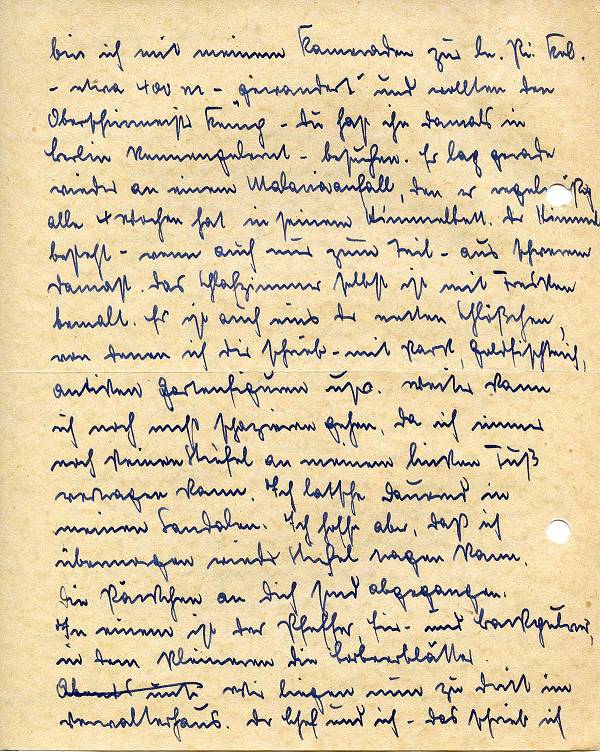 bin ich mit meinem Kameraden zur
- etwa 400 m - gewandert und wollten den
Oberschirrmeister König - Du hast ihn damals in
Berlin kennengelernt - besuchen. Er lag gerade
wieder an einem Malariaanfall, den er regelmäßig
alle 4 Wochen hat in seinem Himmelbett. Der Himmel
besteht - wenn auch nur zum Teil - aus schwerem
Damast. Das Schlafzimmer selbst ist mit Fresken
bemalt. Es ist auch eins der netten Schlößchen,
von denen ich Dir schrieb - mit Park, Goldfischteich,
antiken Gartenfiguren usw. Weiter kann
ich noch nicht spazieren gehen, da ich immer
noch keinen Stiefel an meinem linken Fuß
vertragen kann. Ich latsche dauernd in
meinen Sandalen. Ich hoffe aber, daß ich
übermorgen wieder Stiefel tragen kann.
Die Päckchen an Dich sind abgegangen.
In einem ist der Pfeffer, Ei- und Backpulver,
in dem kleineren die Lorbeerblätter.
Wir liegen nun zu dritt im
Verwalterhaus. Der Chef und ich - das schrieb ich